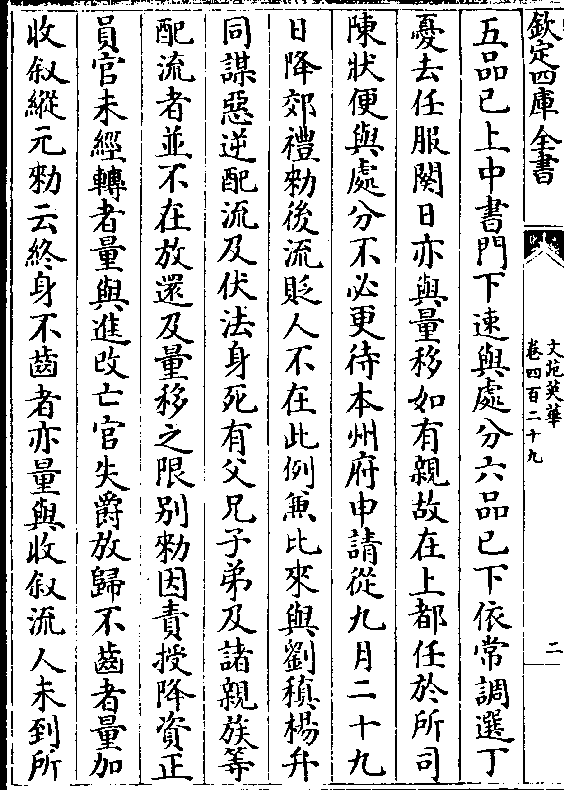 欽定四庫全書
文苑英華
卷四百二十九
二
五品已上中書門下速與處分六品已下依常調選丁
憂去任服闋日亦與量移如有親故在上都任於所司
陳狀便與處分不必更待本州府申請從九月二十九
日降郊禮勑後流貶人不在此例兼比來與劉稹楊弁
同謀惡逆配流及伏法身死有父兄子弟及諸親族等
配流者並不在放還及量移之限別勑因責授降資正
員官未經轉者量與進改亡官失爵放歸不齒者量加
收叙縱元勑云終身不齒者亦量與收叙流人未到所